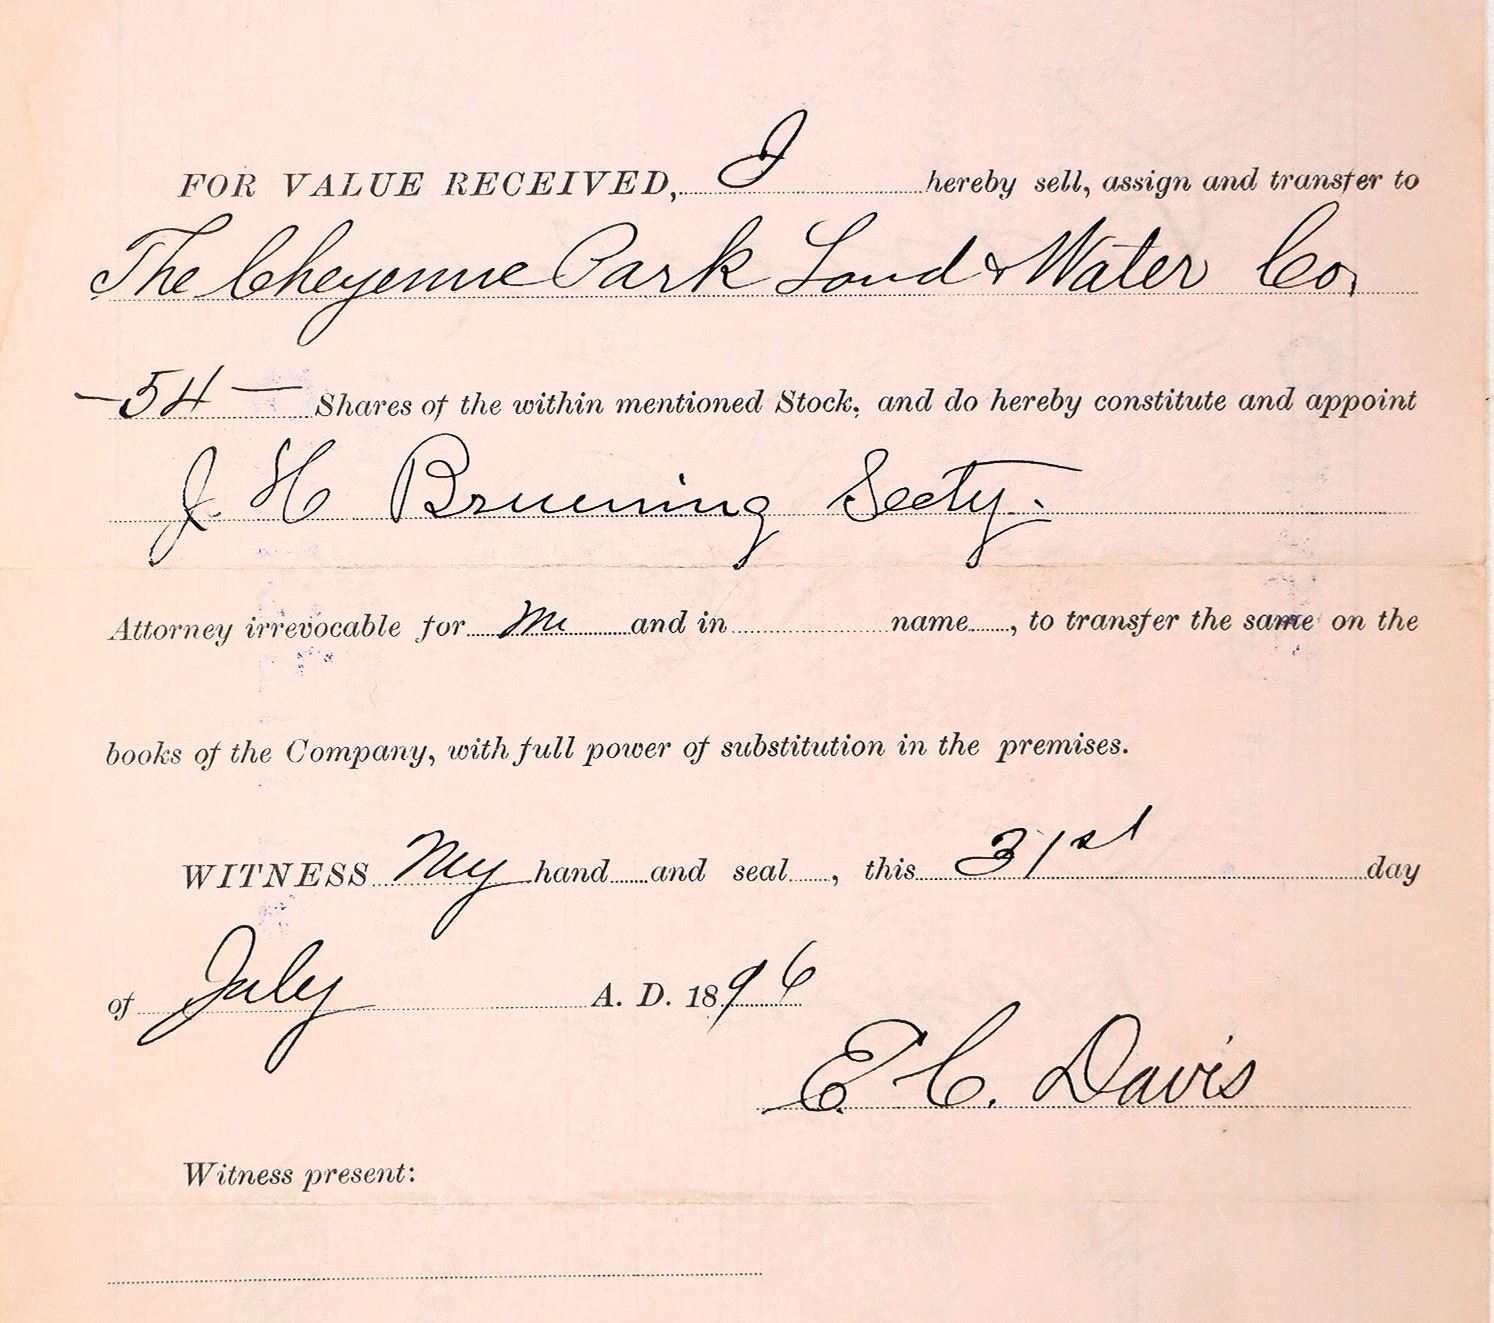 FOR VALUE RECEIVED, I hereby sell, assign and transfer to
The Cheyenne Park Land & Water Co.
— 54 — Shares of the within mentioned Stock, and do hereby constitute and appoint
J. H. Bruening Secty.
Attorney irrevocable for me and in name , to transfer the same on the
books of the Company, with full power of substitution in the premises.
WITNESS My hand and seal , this 31st day
of July A. D. 1896
E. C. Davis
Witness present: